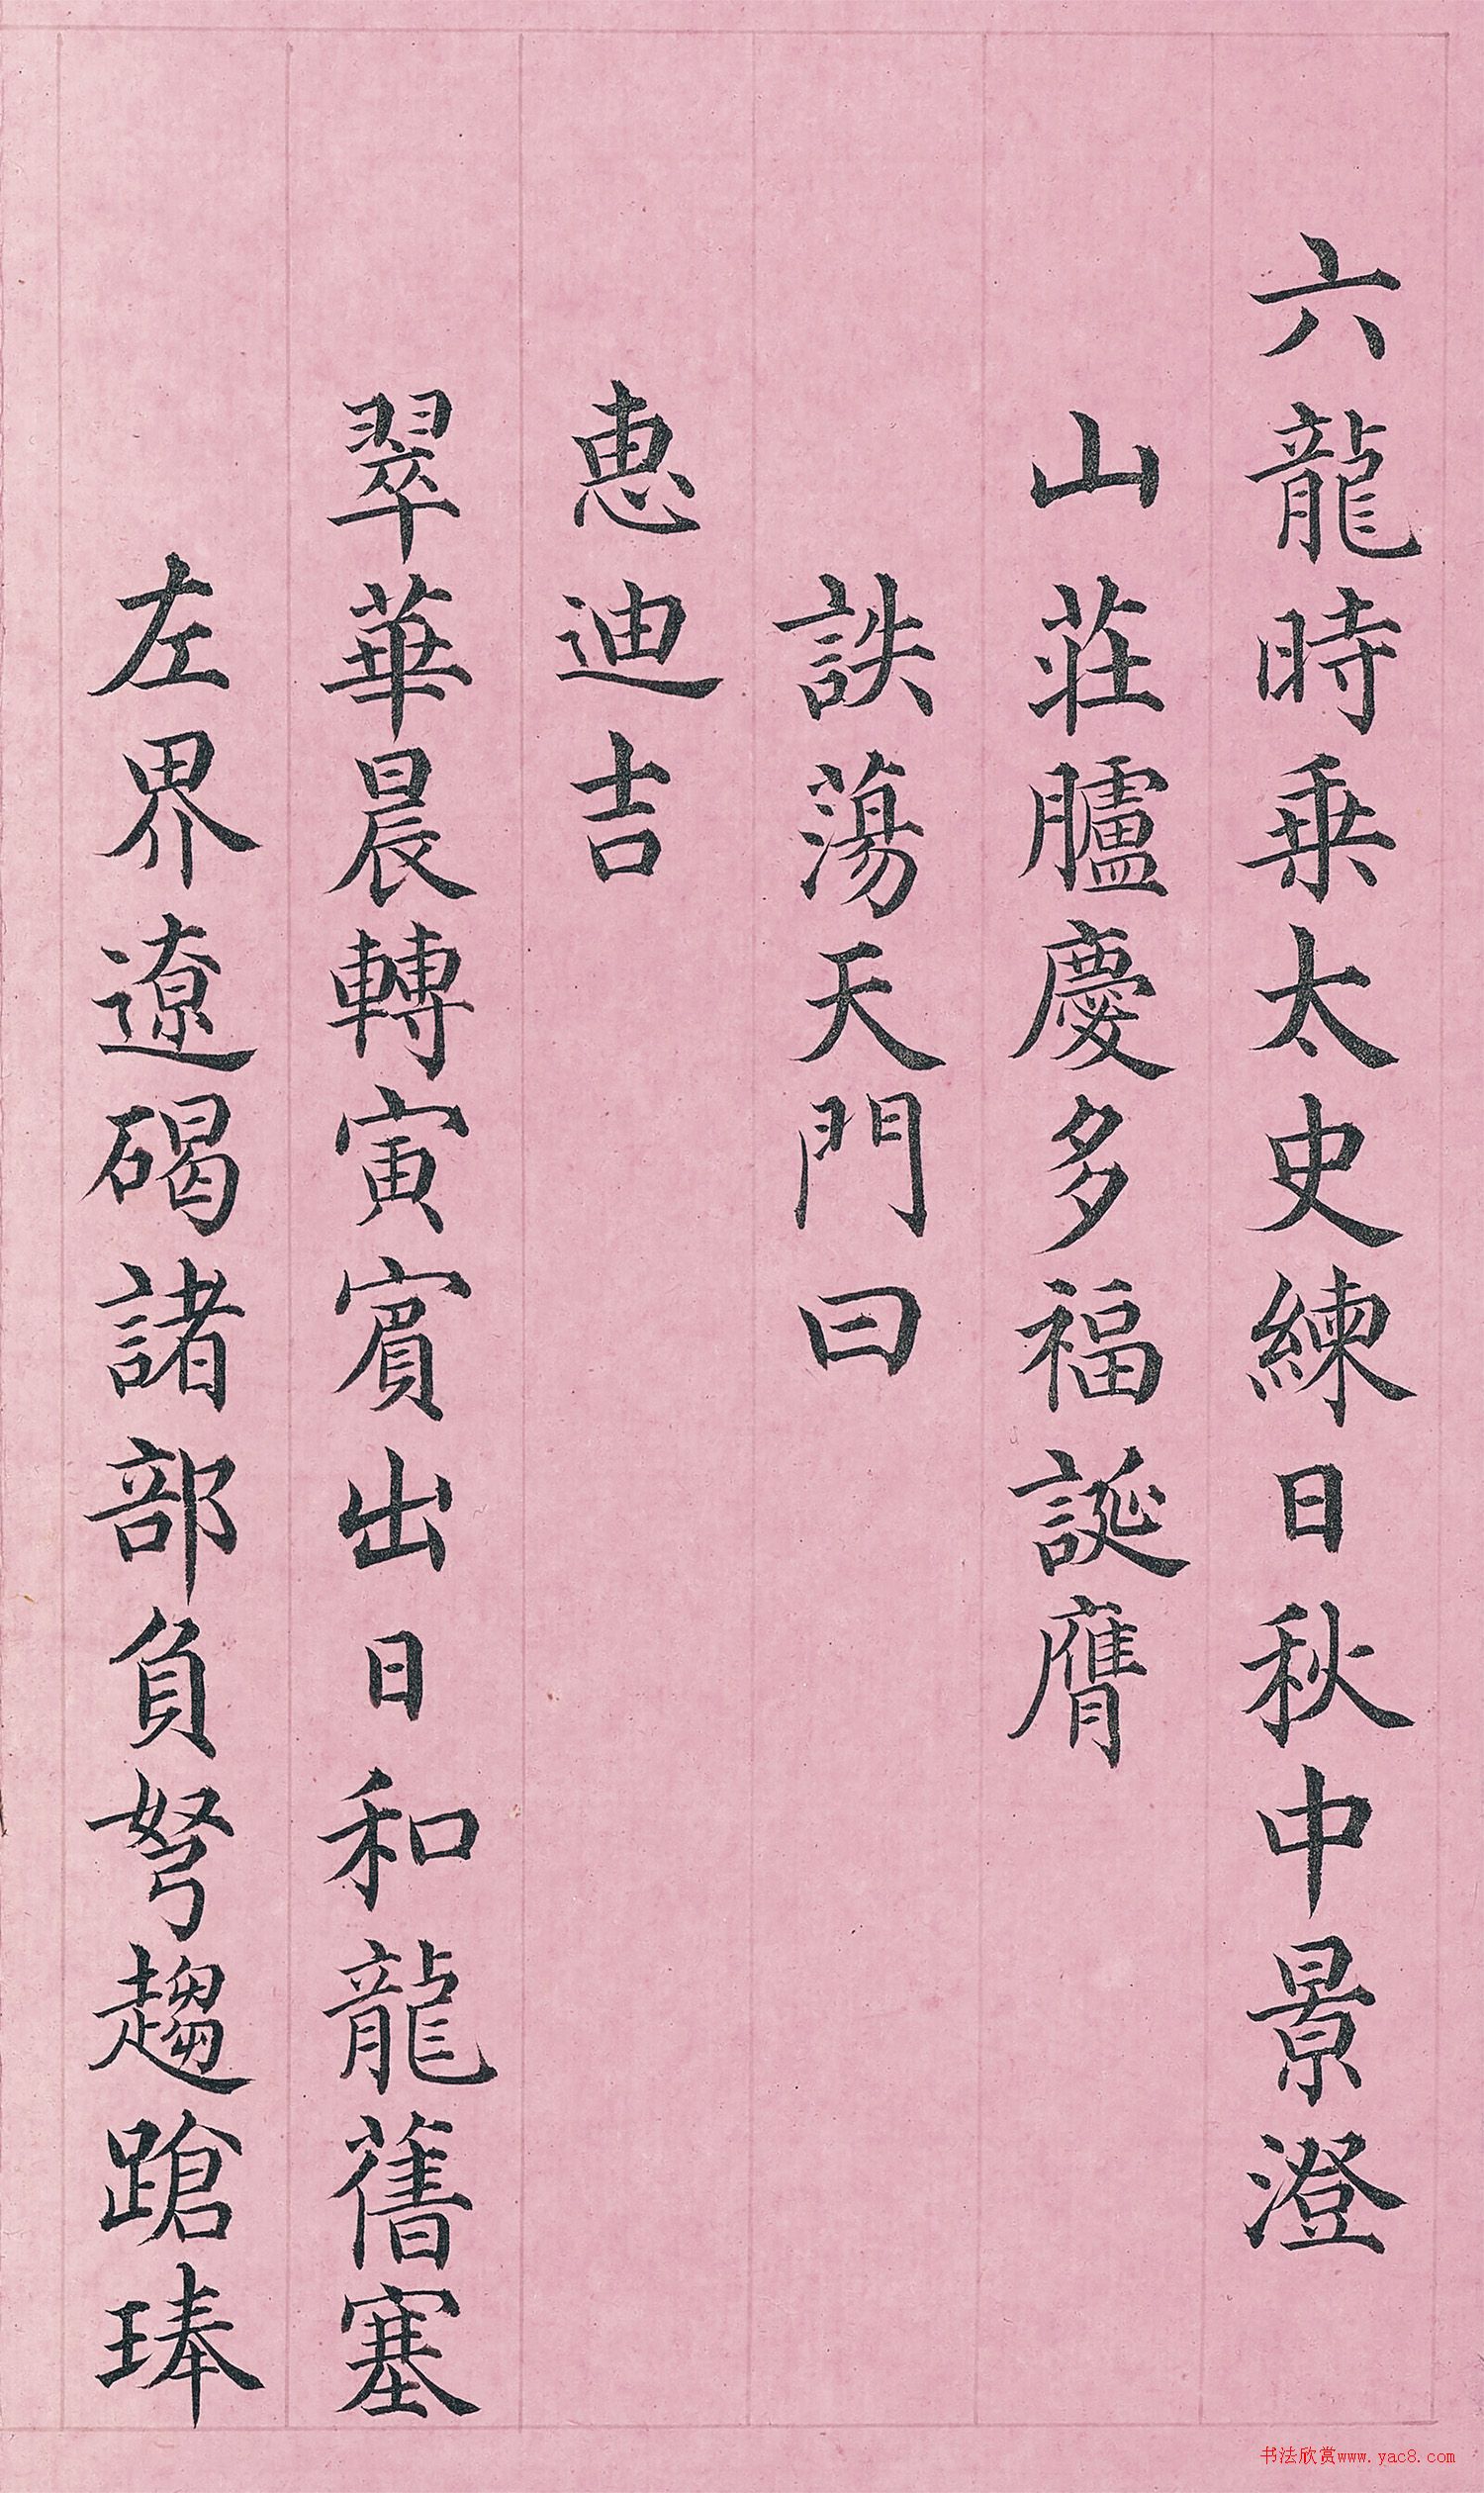 六龍時乗太史練日秋中景澄
山莊臚慶多福誕膺
詄蕩天門曰
惠迪吉
翠華晨轉寅賓出日和龍舊塞
左界遼碣諸部負弩趨蹌琫
书法欣赏www.yac8.com